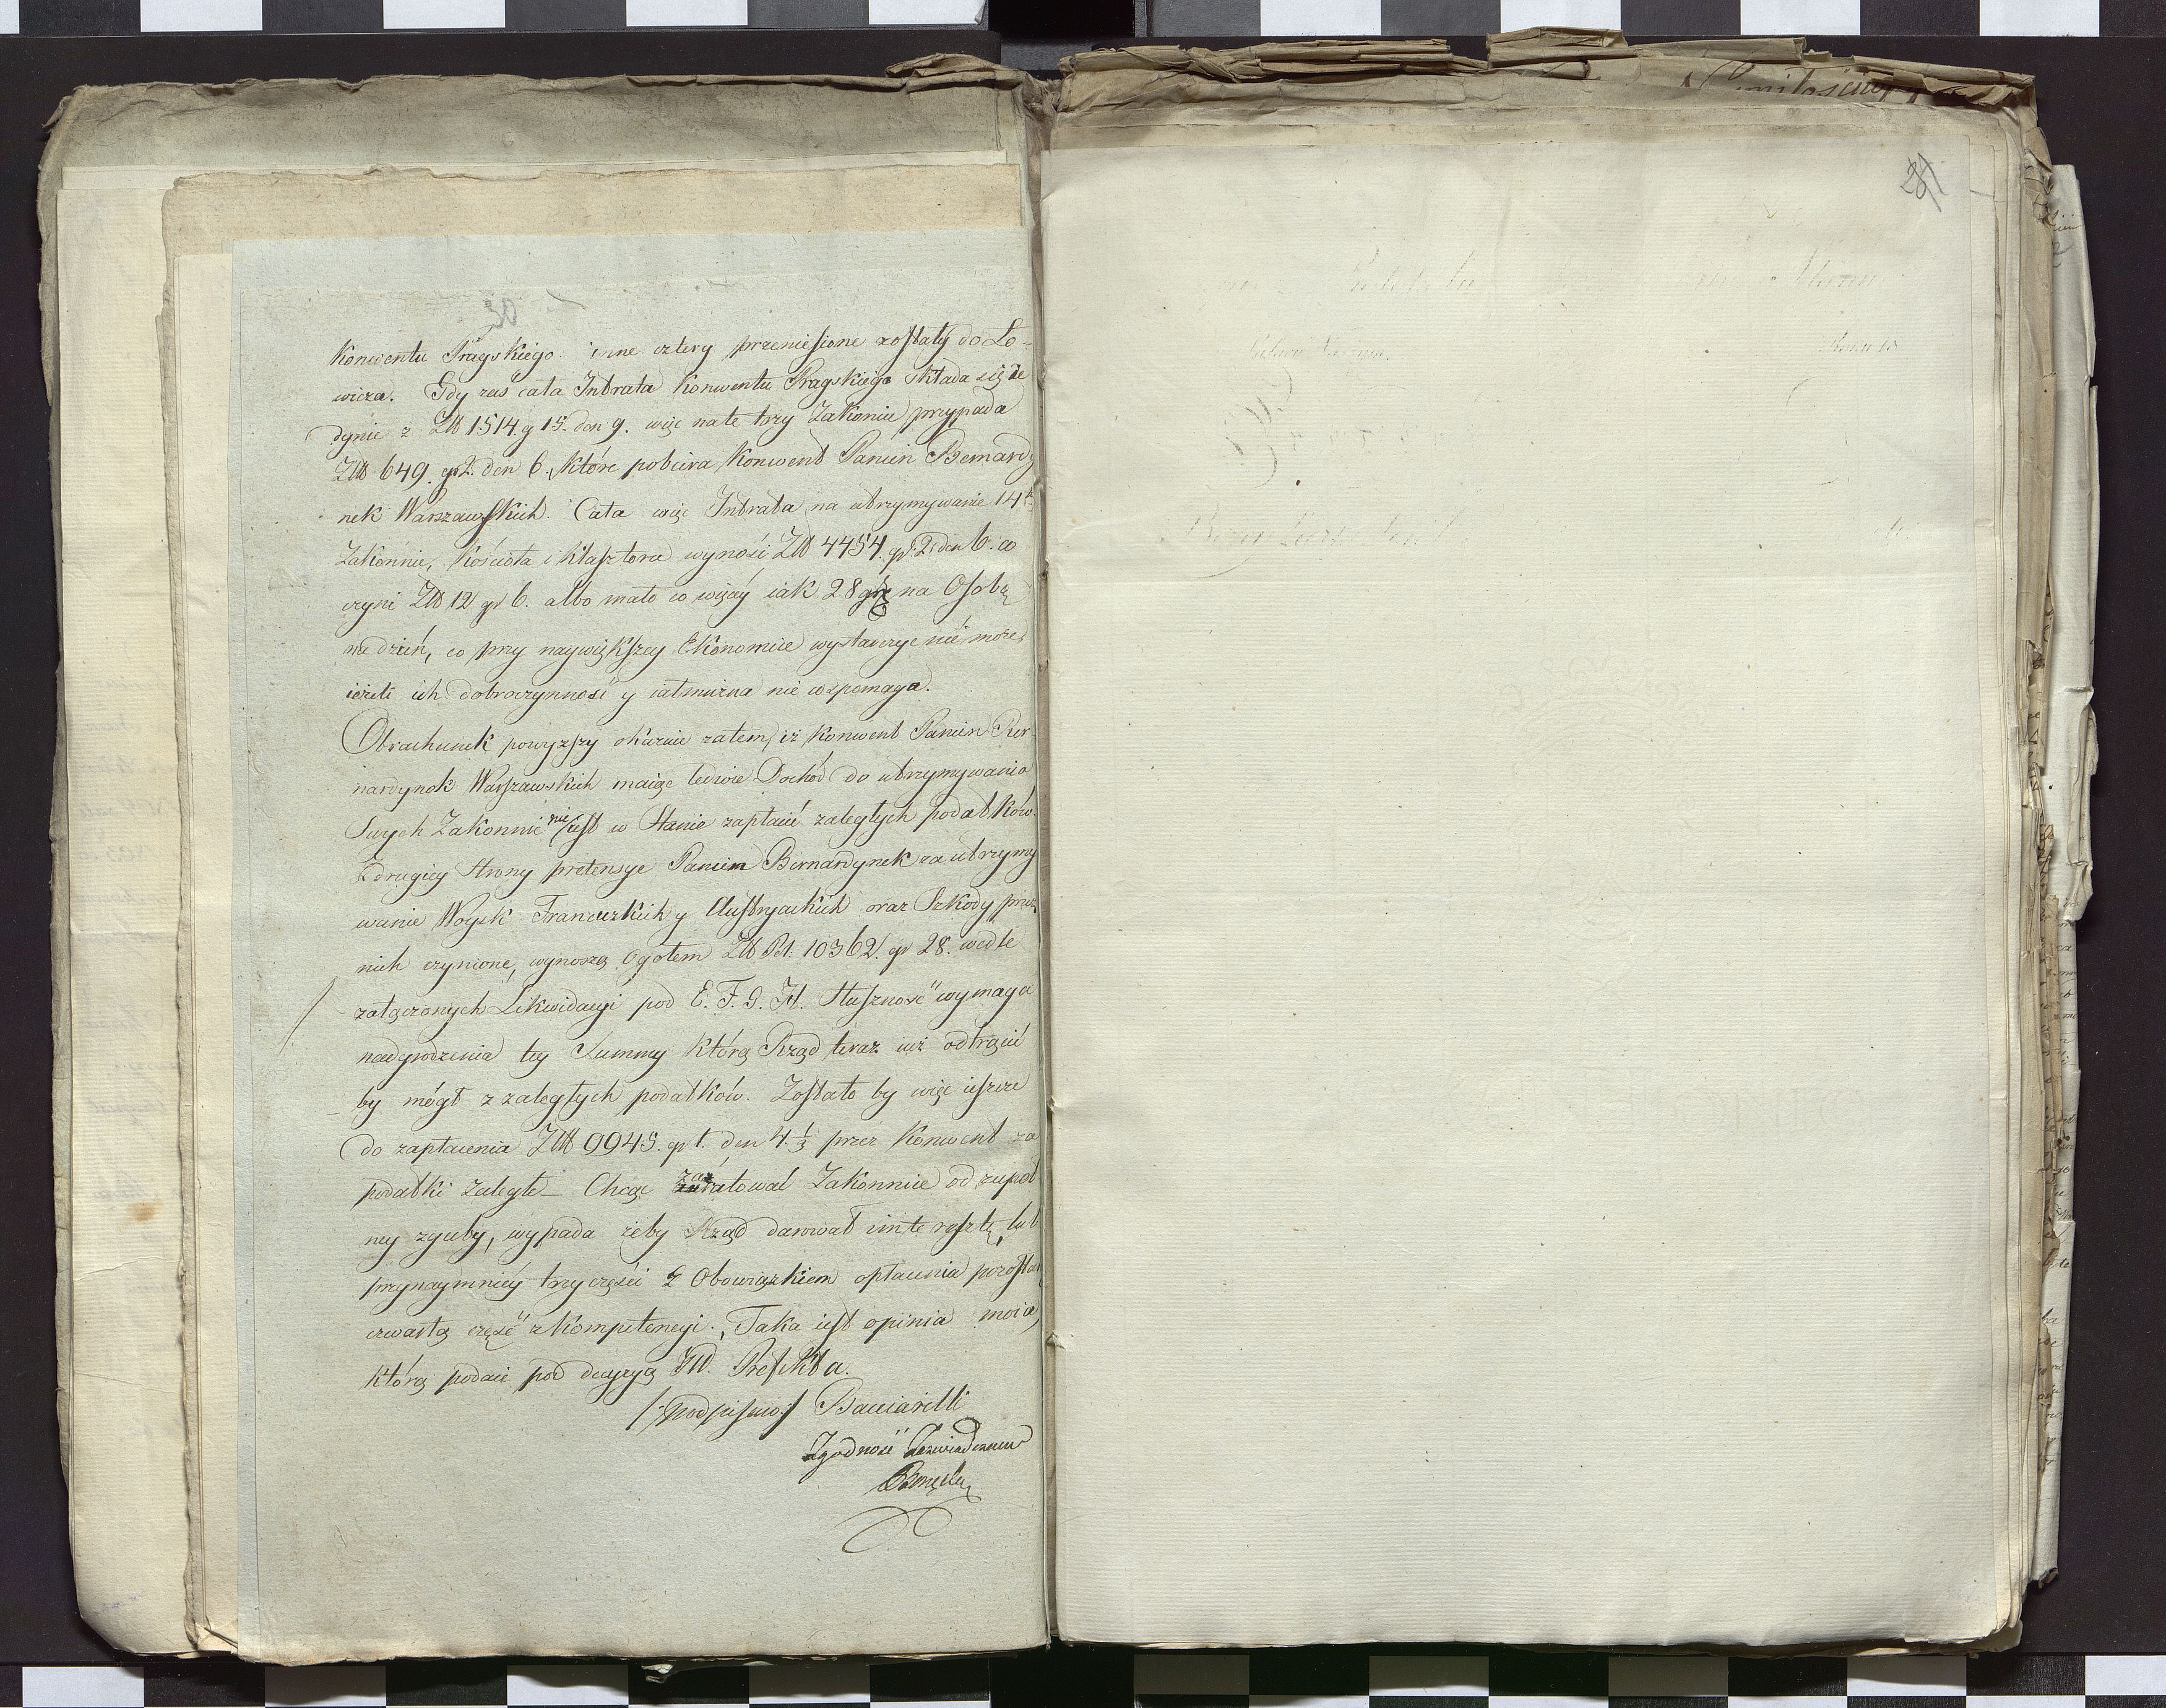 28
Konwentu Pragskiego. inne cztery przeniesione zostały do Ło-
wicza. Gdy zaś cała Intrata Konwentu Pragskiego składa się ie
dynie z Złł 1514. g 15. den 9. więc na te trzy Zakonice przypada
Złł 649. gr 2. den 6. które pobiera Konwent Panien Bernardy
nek Warszawskich. Cała więc Intrata na utrzymywanie 14
Zakonnic, Kościoła i Klasztora wynosi Złł 4454. gr 2. den 6. co
czyni Złł 12 gr 6. albo mało co więcy iak 28 na Osobę
na dzień, co przy naywiększey Ekonomice wystarczyc nie może,
ieżeli ich dobroczynność y iałmużna nie wspomaga.
Obrachunek powyższy okazuie zatem, iż Konwent Panien Ber-
nardynek Warszawskich maiąc ledwie Dochód do utrzymywania
Swych Zakonnic nie iest w Stanie zapłacić zaległych podatków.
Z drugiey Strony pretensye Panien Bernardynek za utrzymy
wanie Woysk Francuzkich y Austryackich oraz Szkody przez
nich czynione, wynoszą Ogołem Złł Pol: 10362. gr 28. wedle
załączonych Likwidacyi pod E. F. G. H. Słuszność wymaga
nadgrodzenia tey Summy którą Rząd teraz iuż odtrącić
by mógł z zaległych podatków. Zostało by więc ieszcze
do zapłacenia Złł 9945. gr 1. den 4 1/3 przez Konwent za
podatki zaległe - Chcąc zaratować Zakonnice od zupeł
ney zguby, wypada żeby Rząd darował im te resztę, lub
przynaymniéy trzy części z Obowiązkiem opłacenia pozostał
czwartą część z Kompetencyi. Taka iest opinia moia,
którą podaię pod decyzyą JW. Prefekta.
/: podpisano :/ Bacciarelli
Zgodność Zaświadczam